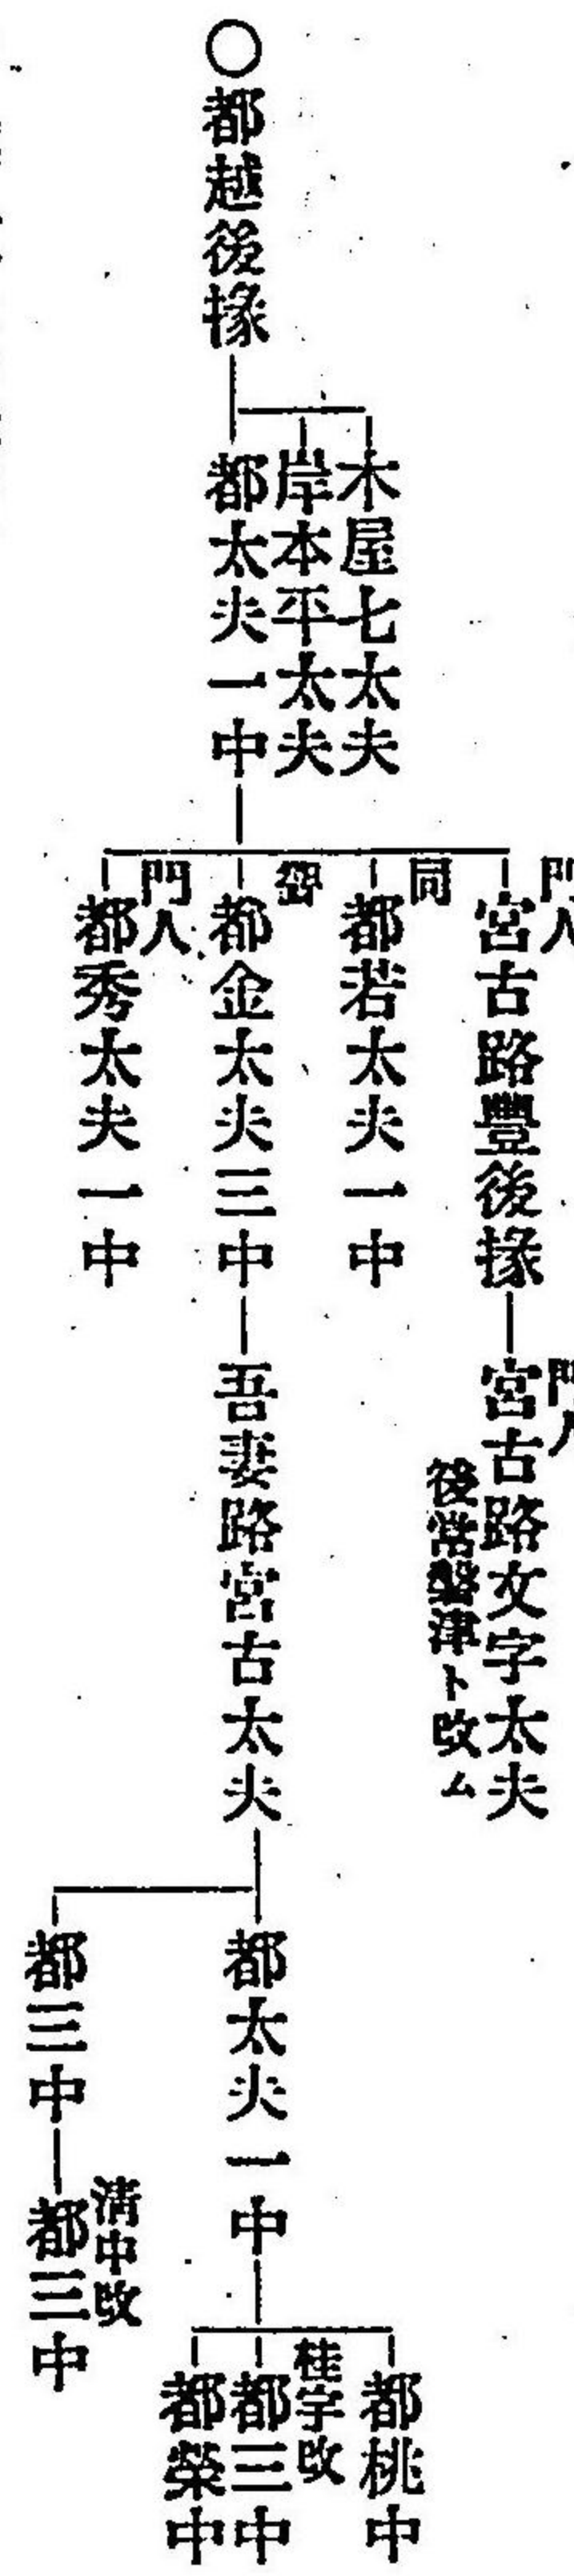 ○都越後掾
木屋七太夫
岸本平太夫
都太夫一中
門人
宮古路豐後掾
門人
宮古路文字太夫
後常磐津ト改ム
同
都若太夫一中
都金太夫三中
吾妻路宮古太夫
門人
都秀太夫一中
都太夫一中
都桃中
桂字改
都三中
都榮中
都三中
淸中改
都三中